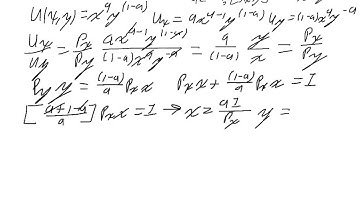 U(x,y)=x^a y^(1-a)  U_x = ax^(a-1) y^(1-a)  U_y=(1-a)x^a y^-a
U_x/U_y = P_x/P_y  ax^(a-1) y^(1-a)/(1-a)x^a y^-a = a/(1-a) y/x = P_x/P_y
P_y y = (1-a)/a P_x x  P_x x + (1-a)/a P_x x = I
[(a+1-a)/a] P_x x = I → x = aI/P_x  y =